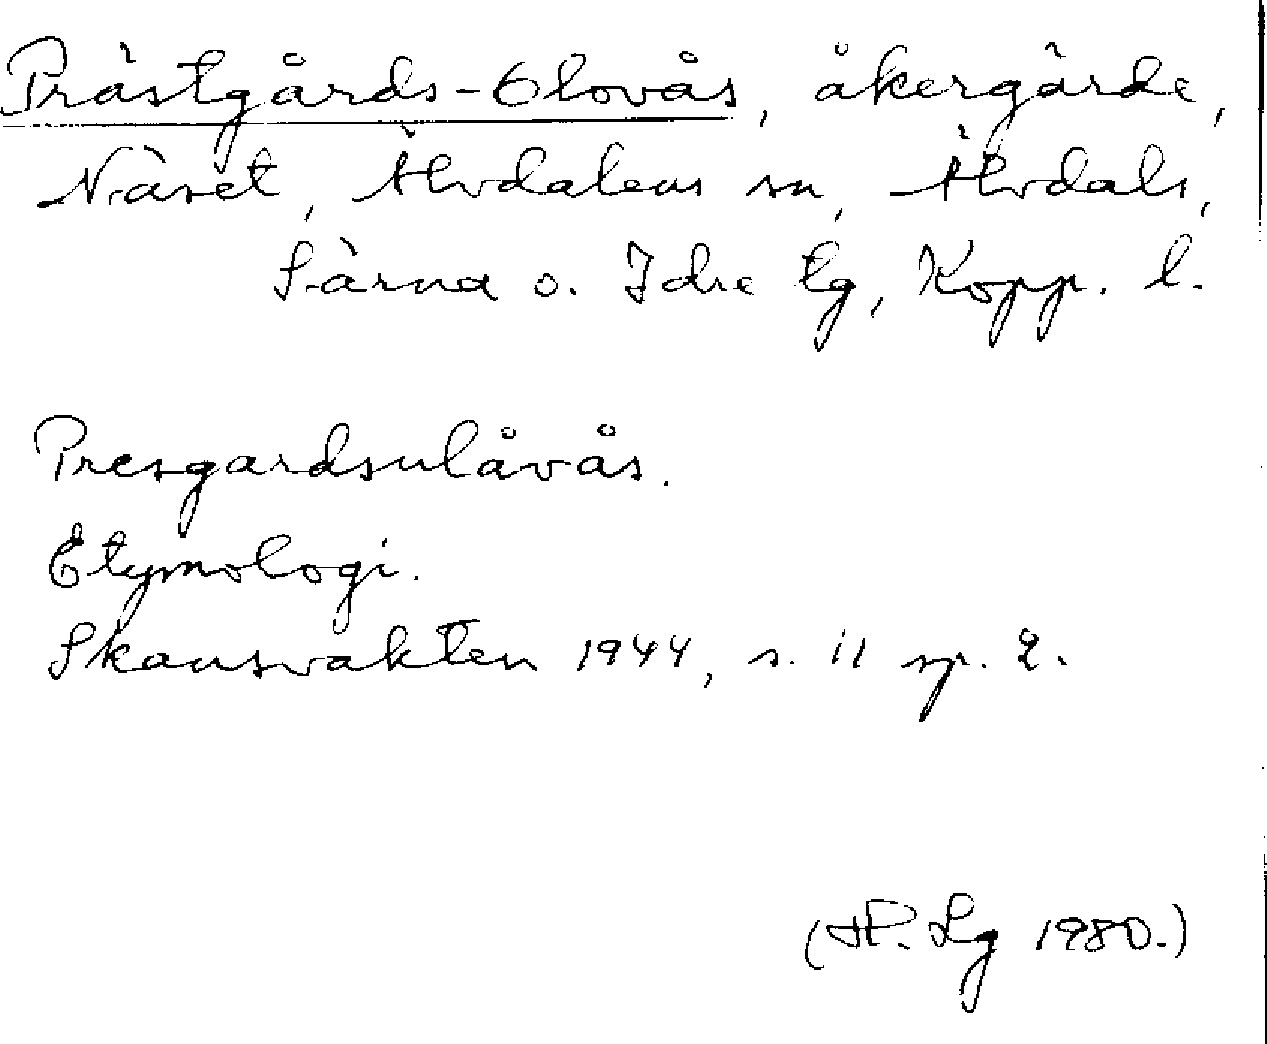 Prästgårds-Olovås, åkergärde,
Näset, Älvdalens sn, Älvdals,
Särna o. Idre tg, Kopp. l.
Presgardsulåvås.
Etymologi.
Skansvakten 1944, s. 11 sp. 2.
Lg 1980.)